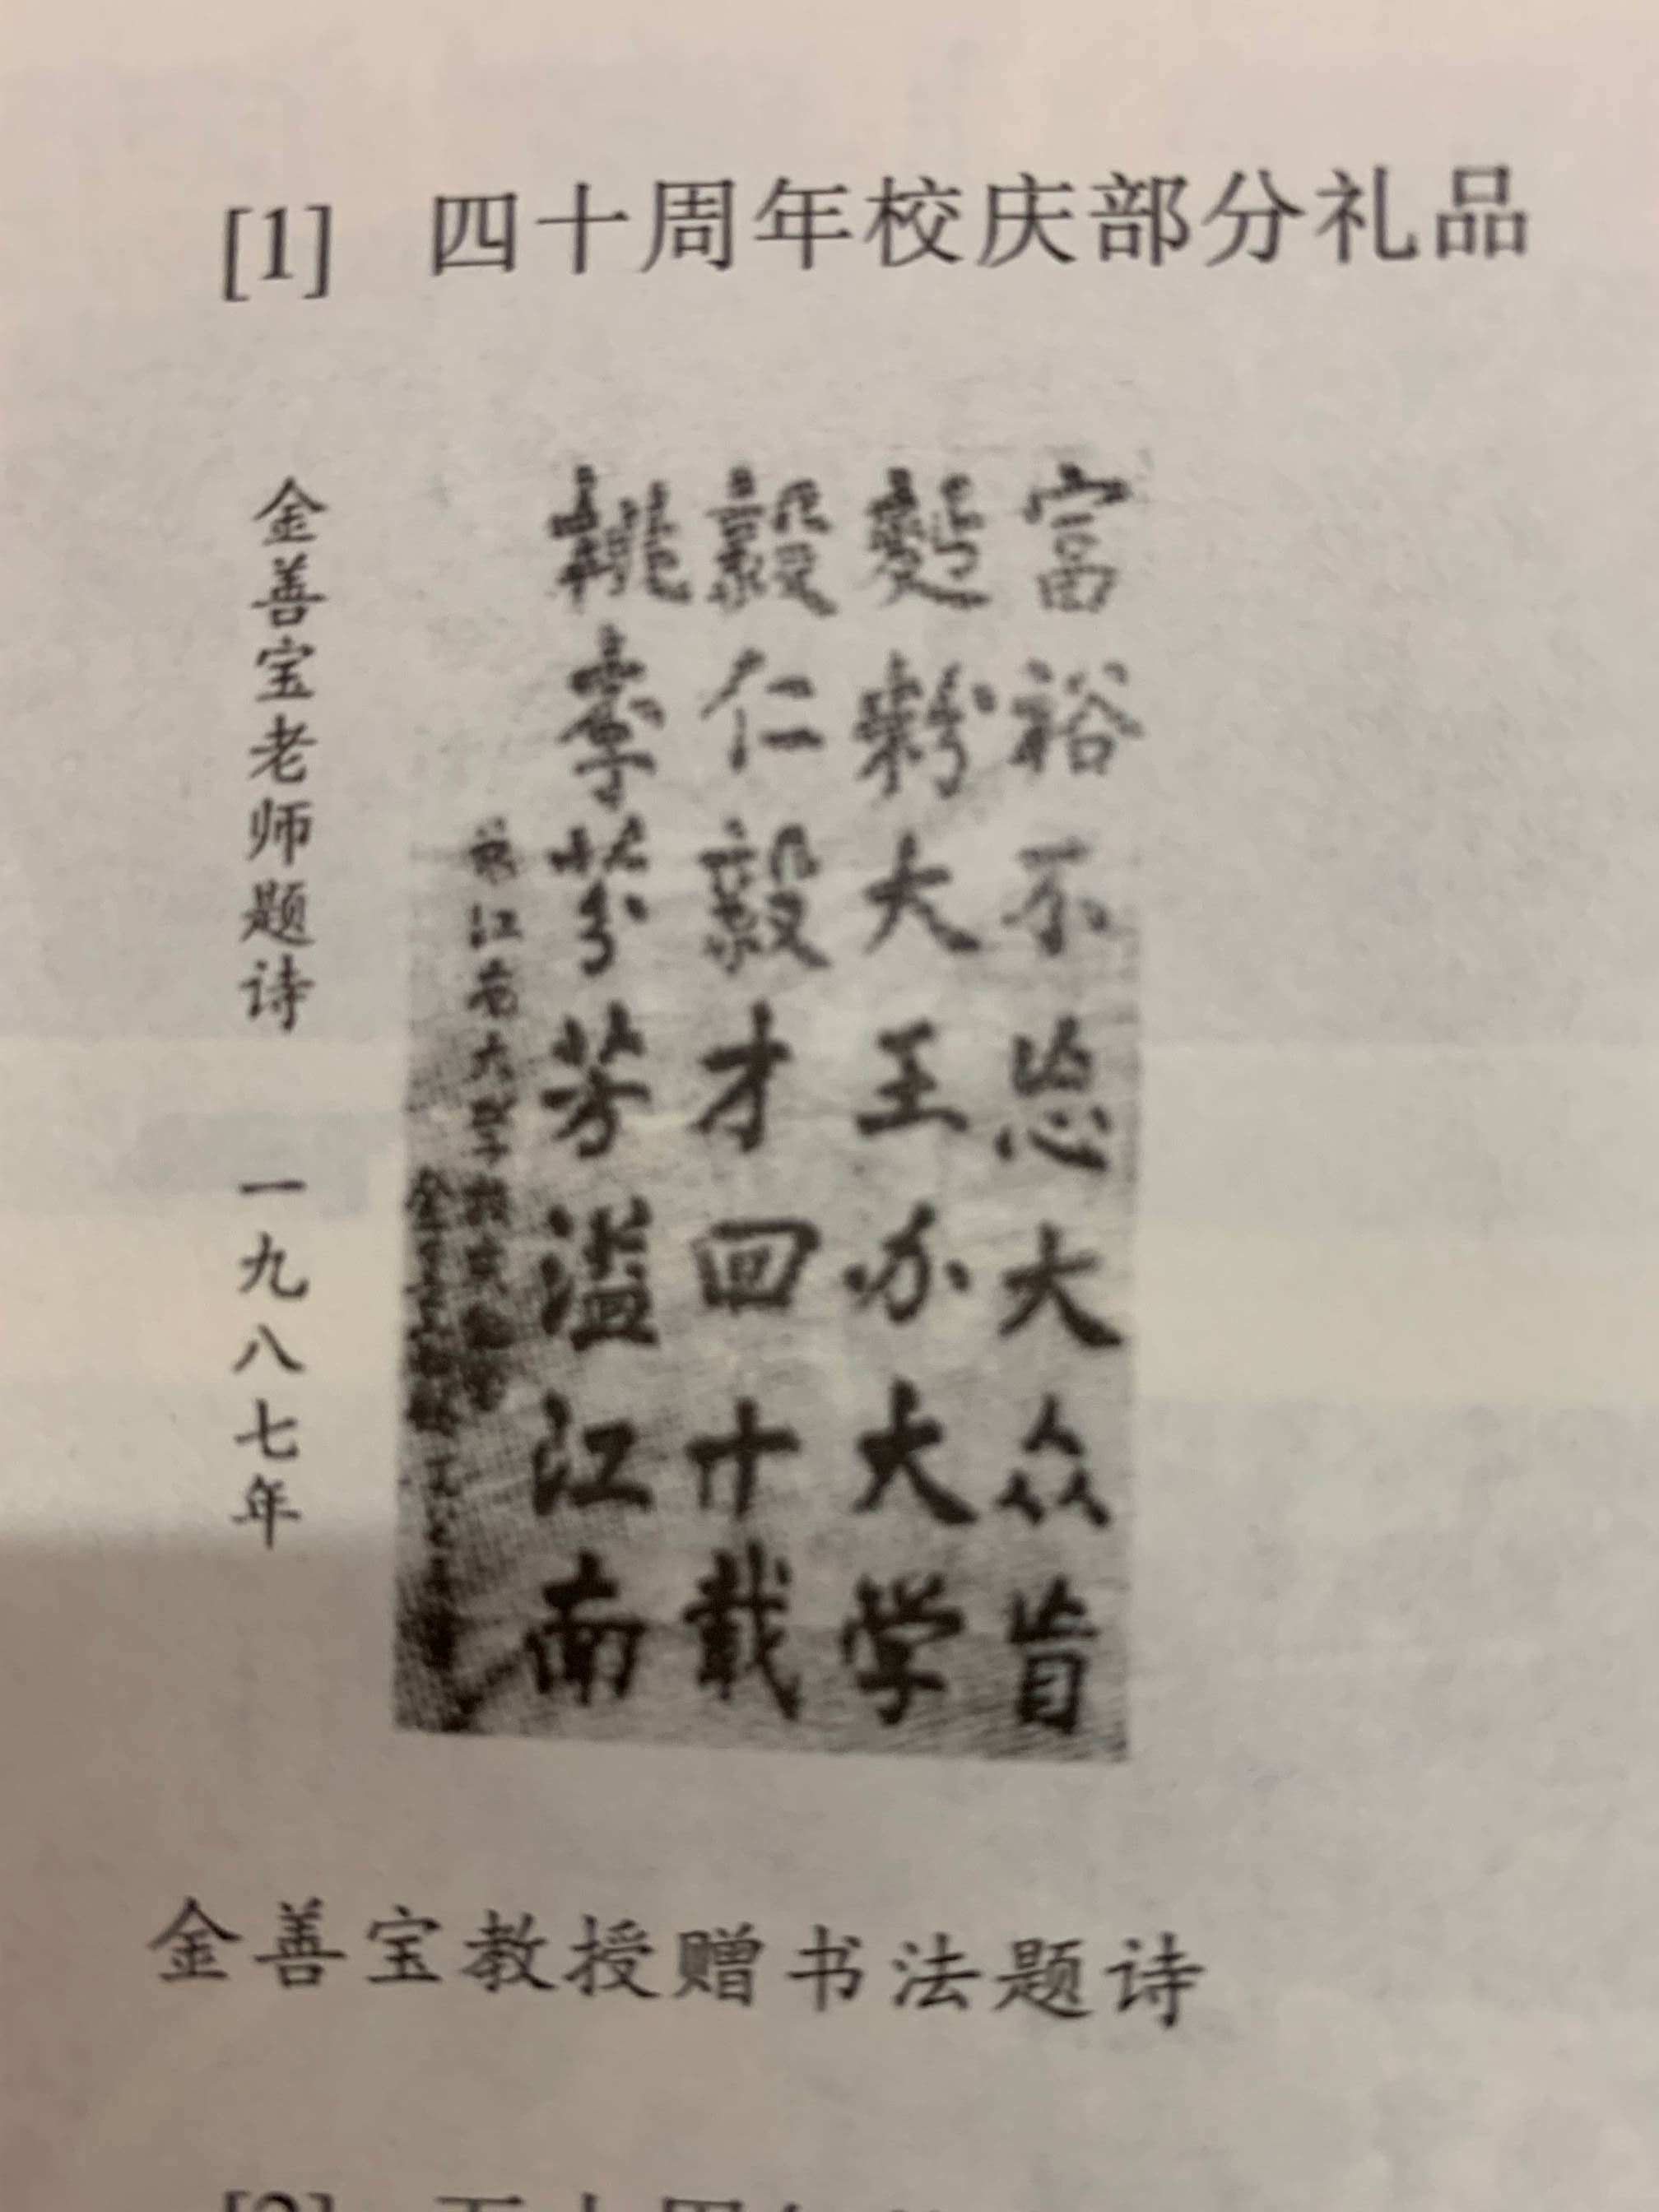 [1] 四十周年校庆部分礼品
富裕不忘大众旨
麫粉大王办大学
毅仁毅才四十载
桃李芬芳溢江南
江南大学
金善宝老师题诗 一九八七年
金善宝教授赠书法题诗